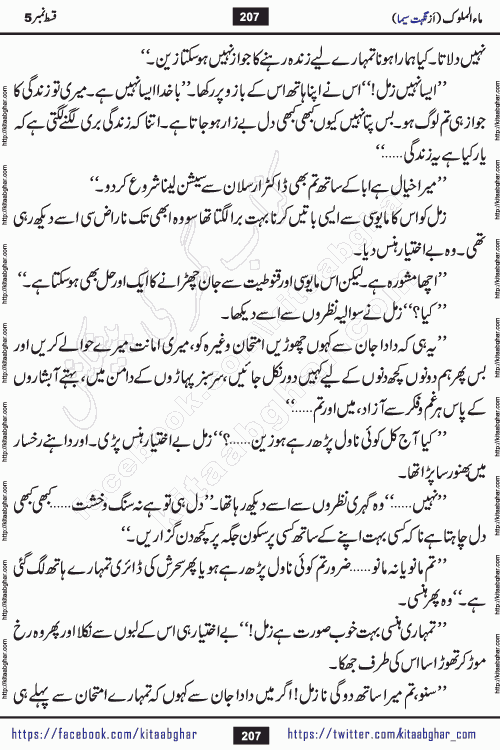 ماءالملوک (از نگہت سیما)
207
قسط نمبر 5
نہیں دلاتا۔ کیا ہمارا ہونا تمہارے لیے زندہ رہنے کا جواز نہیں ہوسکتا زین۔‘‘
’’ایسا نہیں زمل!‘‘ اس نے اپنا ہاتھ اس کے بازو پر رکھا۔ ’’باخدا ایسا نہیں ہے۔ میری تو زندگی کا
جواز ہی تم لوگ ہو۔ بس پتا نہیں کیوں کبھی کبھی دل بے زار ہوجاتا ہے۔ اتنا کہ زندگی بری لگنے لگتی ہے کہ
یار کیا ہے یہ زندگی......‘‘
’’میرا خیال ہے ابا کے ساتھ تم بھی ڈاکٹر ارسلان سے سیشن لینا شروع کردو۔‘‘
زمل کو اس کا مایوسی سے ایسی باتیں کرنا بہت برا لگتا تھا سو وہ ابھی تک ناراض سی اسے دیکھ رہی
تھی۔ وہ بے اختیار ہنس دیا۔
’’اچھا مشورہ ہے۔ لیکن اس مایوسی اور قنوطیت سے جان چھڑانے کا ایک اور حل بھی ہوسکتا ہے۔‘‘
’’کیا؟‘‘ زمل نے سوالیہ نظروں سے اسے دیکھا۔
’’یہ ہی کہ دادا جان سے کہوں چھوڑیں امتحان وغیرہ کو، میری امانت میرے حوالے کریں اور
بس پھر ہم دونوں کچھ دنوں کے لیے کہیں دور نکل جائیں، سرسبز پہاڑوں کے دامن میں، بہتے آبشاروں
کے پاس ہر غم و فکر سے آزاد، میں اور تم......‘‘
’’کیا آج کل کوئی ناول پڑھ رہے ہو زین......؟‘‘ زمل بے اختیار ہنس پڑی۔ اور داہنے رخسار
میں بھنور سا پڑا تھا۔
’’نہیں......‘‘ وہ گہری نظروں سے اسے دیکھ رہا تھا۔ ’’دل ہی تو ہے نہ سنگ و خشت......کبھی کبھی
دل چاہتا ہے نا کہ کسی بہت اپنے کے ساتھ کسی پر سکون جگہ پر کچھ دن گزاریں۔‘‘
’’تم مانو یا نہ مانو......ضرور تم کوئی ناول پڑھ رہے ہو یا پھر سحرش کی ڈائری تمہارے ہاتھ لگ گئی
ہے۔‘‘ وہ پھر ہنسی۔
’’تمہاری ہنسی بہت خوب صورت ہے زمل!‘‘ بے اختیار ہی اس کے لبوں سے نکلا اور پھر وہ رخ
موڑ کر تھوڑا سا اس کی طرف جھکا۔
’’سنو، تم میرا ساتھ دو گی نا زمل! اگر میں دادا جان سے کہوں کہ تمہارے امتحان سے پہلے ہی
https://facebook.com/kitaabghar
207
https://twitter.com/kitaabghar_com
http://kitaabghar.com
facebook.com/kitaabghar
kitaabghar.com